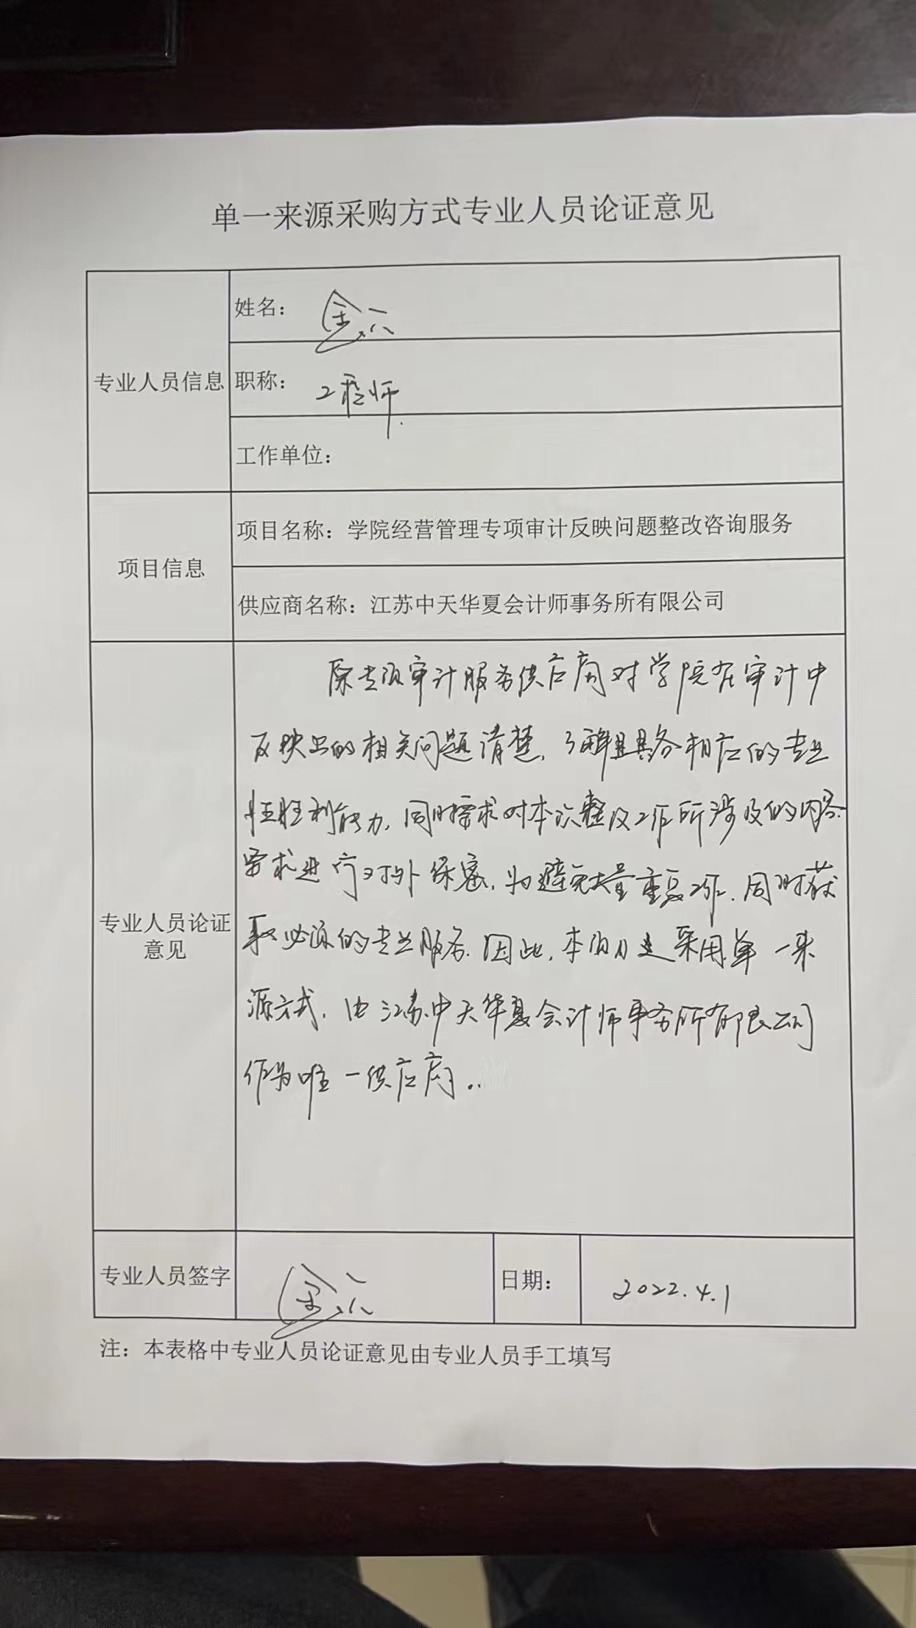 单一来源采购方式专业人员论证意见
专业人员信息
姓名：金
职称：工程师
工作单位：
项目信息
项目名称：学院经营管理专项审计反映问题整改咨询服务
供应商名称：江苏中天华夏会计师事务所有限公司
专业人员论证
意见
原专项审计服务供应商对学院在审计中
反映出的相关问题清楚，了解且具备相应的专业
胜任能力，同时需求对本次整改工作所涉及的内容
要求进行对外保密，为避免大量重复工作，同时获
取必须的专业服务，因此，本项目建采用单一来
源方式，由江苏中天华夏会计师事务所有限公司
作为唯一供应商。
专业人员签字
金
日期：
2022.4.1
注：本表格中专业人员论证意见由专业人员手工填写